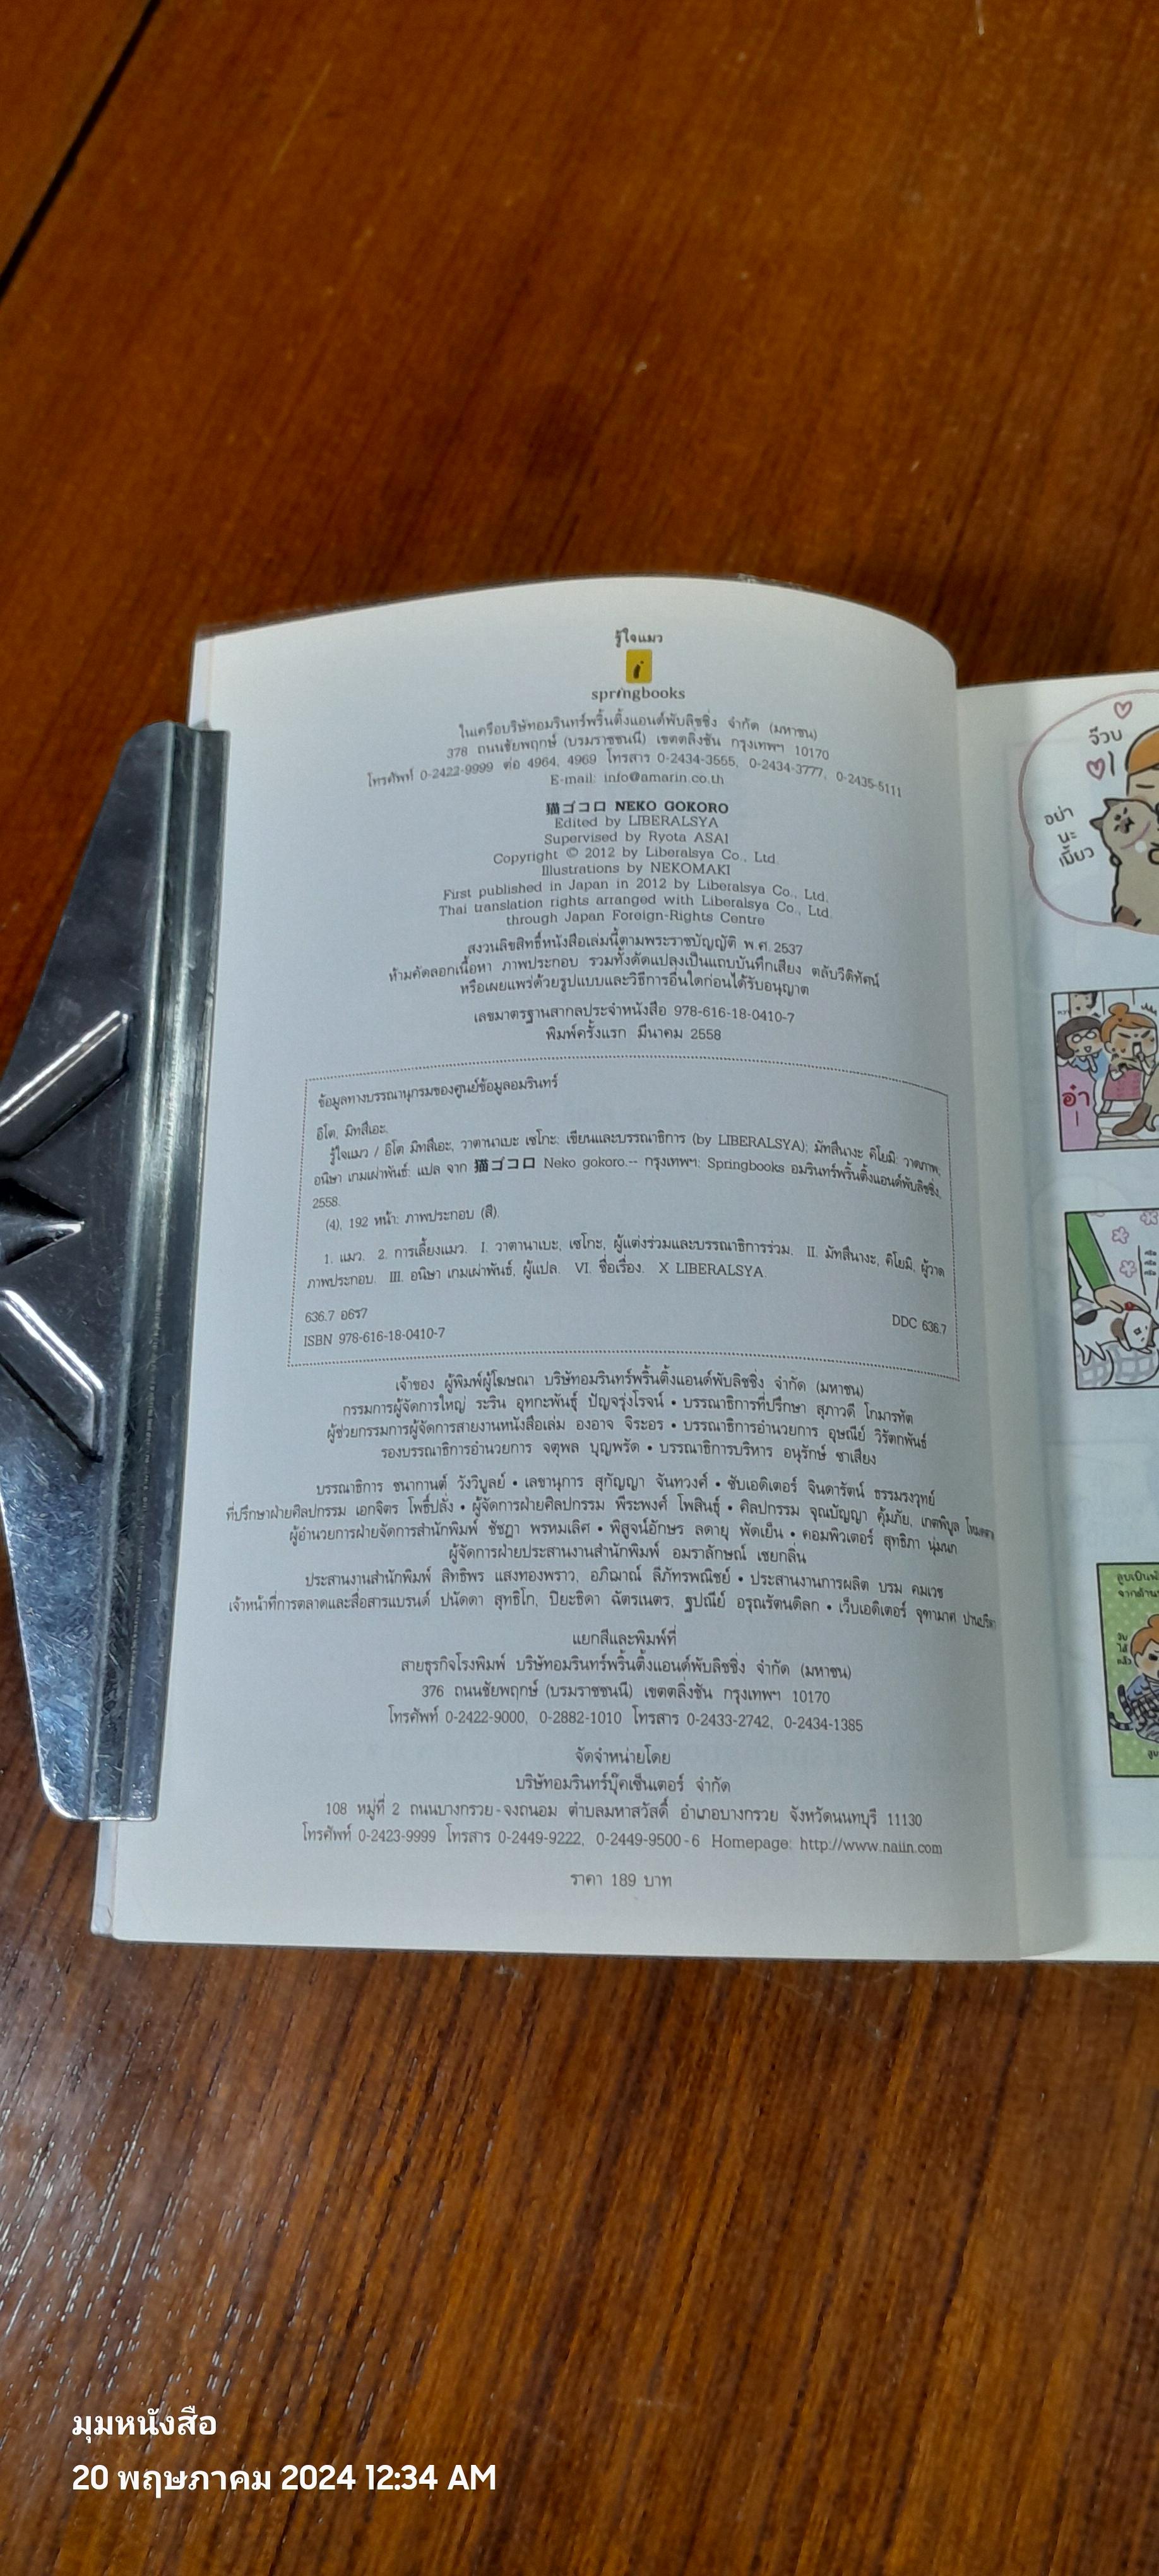 รู้ใจแมว
springbooks
ในเครือบริษัทอมรินทร์พริ้นติ้งแอนด์พับลิชชิ่ง จำกัด (มหาชน)
378 ถนนชัยพฤกษ์ (บรมราชชนนี) เขตตลิ่งชัน กรุงเทพฯ 10170
โทรศัพท์ 0-2422-9999 ต่อ 4964, 4969 โทรสาร 0-2434-3555, 0-2434-3777, 0-2435-5111
E-mail: info@amarin.co.th
猫ゴコロ NEKO GOKORO
Edited by LIBERALSYA
Supervised by Ryota ASAI
Copyright © 2012 by Liberalsya Co., Ltd.
Illustrations by NEKOMAKI
First published in Japan in 2012 by Liberalsya Co., Ltd.
Thai translation rights arranged with Liberalsya Co., Ltd.
through Japan Foreign-Rights Centre
สงวนลิขสิทธิ์หนังสือเล่มนี้ตามพระราชบัญญัติ พ.ศ. 2537
ห้ามคัดลอกเนื้อหา ภาพประกอบ รวมทั้งดัดแปลงเป็นแถบบันทึกเสียง ตลับวีดิทัศน์
หรือเผยแพร่ด้วยรูปแบบและวิธีการอื่นใดก่อนได้รับอนุญาต
เลขมาตรฐานสากลประจำหนังสือ 978-616-18-0410-7
พิมพ์ครั้งแรก มีนาคม 2558
ข้อมูลทางบรรณานุกรมของศูนย์ข้อมูลอมรินทร์
อิโต, มิทสึเอะ.
รู้ใจแมว / อิโต มิทสึเอะ, วาตานาเบะ เซโกะ: เขียนและบรรณาธิการ (by LIBERALSYA); มัทสึนางะ คิโยมิ: วาดภาพ;
อนิษา เกมเผ่าพันธ์: แปล จาก 猫ゴコロ Neko gokoro.-- กรุงเทพฯ: Springbooks อมรินทร์พริ้นติ้งแอนด์พับลิชชิ่ง,
2558.
(4), 192 หน้า: ภาพประกอบ (สี).
1. แมว. 2. การเลี้ยงแมว. I. วาตานาเบะ, เซโกะ, ผู้แต่งร่วมและบรรณาธิการร่วม. II. มัทสึนางะ, คิโยมิ, ผู้วาด
ภาพประกอบ. III. อนิษา เกมเผ่าพันธ์, ผู้แปล. VI. ชื่อเรื่อง. X LIBERALSYA.
636.7 อ6ร7
DDC 636.7
ISBN 978-616-18-0410-7
เจ้าของ ผู้พิมพ์ผู้โฆษณา บริษัทอมรินทร์พริ้นติ้งแอนด์พับลิชชิ่ง จำกัด (มหาชน)
กรรมการผู้จัดการใหญ่ ระริน อุทกะพันธุ์ ปัญจรุ่งโรจน์ • บรรณาธิการที่ปรึกษา สุภาวดี โกมารทัต
ผู้ช่วยกรรมการผู้จัดการสายงานหนังสือเล่ม องอาจ จิระอร • บรรณาธิการอำนวยการ อุษณีย์ วิรัตกพันธ์
รองบรรณาธิการอำนวยการ จตุพล บุญพรัด • บรรณาธิการบริหาร อนุรักษ์ ซาเสียง
บรรณาธิการ ชนากานต์ วังวิบูลย์ • เลขานุการ สุกัญญา จันทวงศ์ • ซับเอดิเตอร์ จินดารัตน์ ธรรมรงวุทย์
ที่ปรึกษาฝ่ายศิลปกรรม เอกจิตร โพธิ์ปลั่ง • ผู้จัดการฝ่ายศิลปกรรม พีระพงศ์ โพสินธุ์ • ศิลปกรรม จุณบัญญา คุ้มภัย, เกตพิบูล
ผู้อำนวยการฝ่ายจัดการสำนักพิมพ์ ชัชฎา พรหมเลิศ • พิสูจน์อักษร ลดายุ พัดเย็น • คอมพิวเตอร์ สุทธิภา นุ่มนก
ผู้จัดการฝ่ายประสานงานสำนักพิมพ์ อมราลักษณ์ เชยกลิ่น
ประสานงานสำนักพิมพ์ สิทธิพร แสงทองพราว, อภิฌาณ์ ลีภัทรพณิชย์ • ประสานงานการผลิต บรม คมเวช
เจ้าหน้าที่การตลาดและสื่อสารแบรนด์ ปนัดดา สุทธิโก, ปิยะธิดา ฉัตรเนตร, ฐปณีย์ อรุณรัตนดิลก • เว็บเอดิเตอร์ จุฑามาศ
แยกสีและพิมพ์ที่
สายธุรกิจโรงพิมพ์ บริษัทอมรินทร์พริ้นติ้งแอนด์พับลิชชิ่ง จำกัด (มหาชน)
376 ถนนชัยพฤกษ์ (บรมราชชนนี) เขตตลิ่งชัน กรุงเทพฯ 10170
โทรศัพท์ 0-2422-9000, 0-2882-1010 โทรสาร 0-2433-2742, 0-2434-1385
จัดจำหน่ายโดย
บริษัทอมรินทร์บุ๊คเซ็นเตอร์ จำกัด
108 หมู่ที่ 2 ถนนบางกรวย-จงถนอม ตำบลมหาสวัสดิ์ อำเภอบางกรวย จังหวัดนนทบุรี 11130
โทรศัพท์ 0-2423-9999 โทรสาร 0-2449-9222, 0-2449-9500-6 Homepage: http://www.naiin.com
ราคา 189 บาท
จ๊วบ
อย่า
นะ
เมี้ยว
อ๋า
มุมหนังสือ
20 พฤษภาคม 2024 12:34 AM